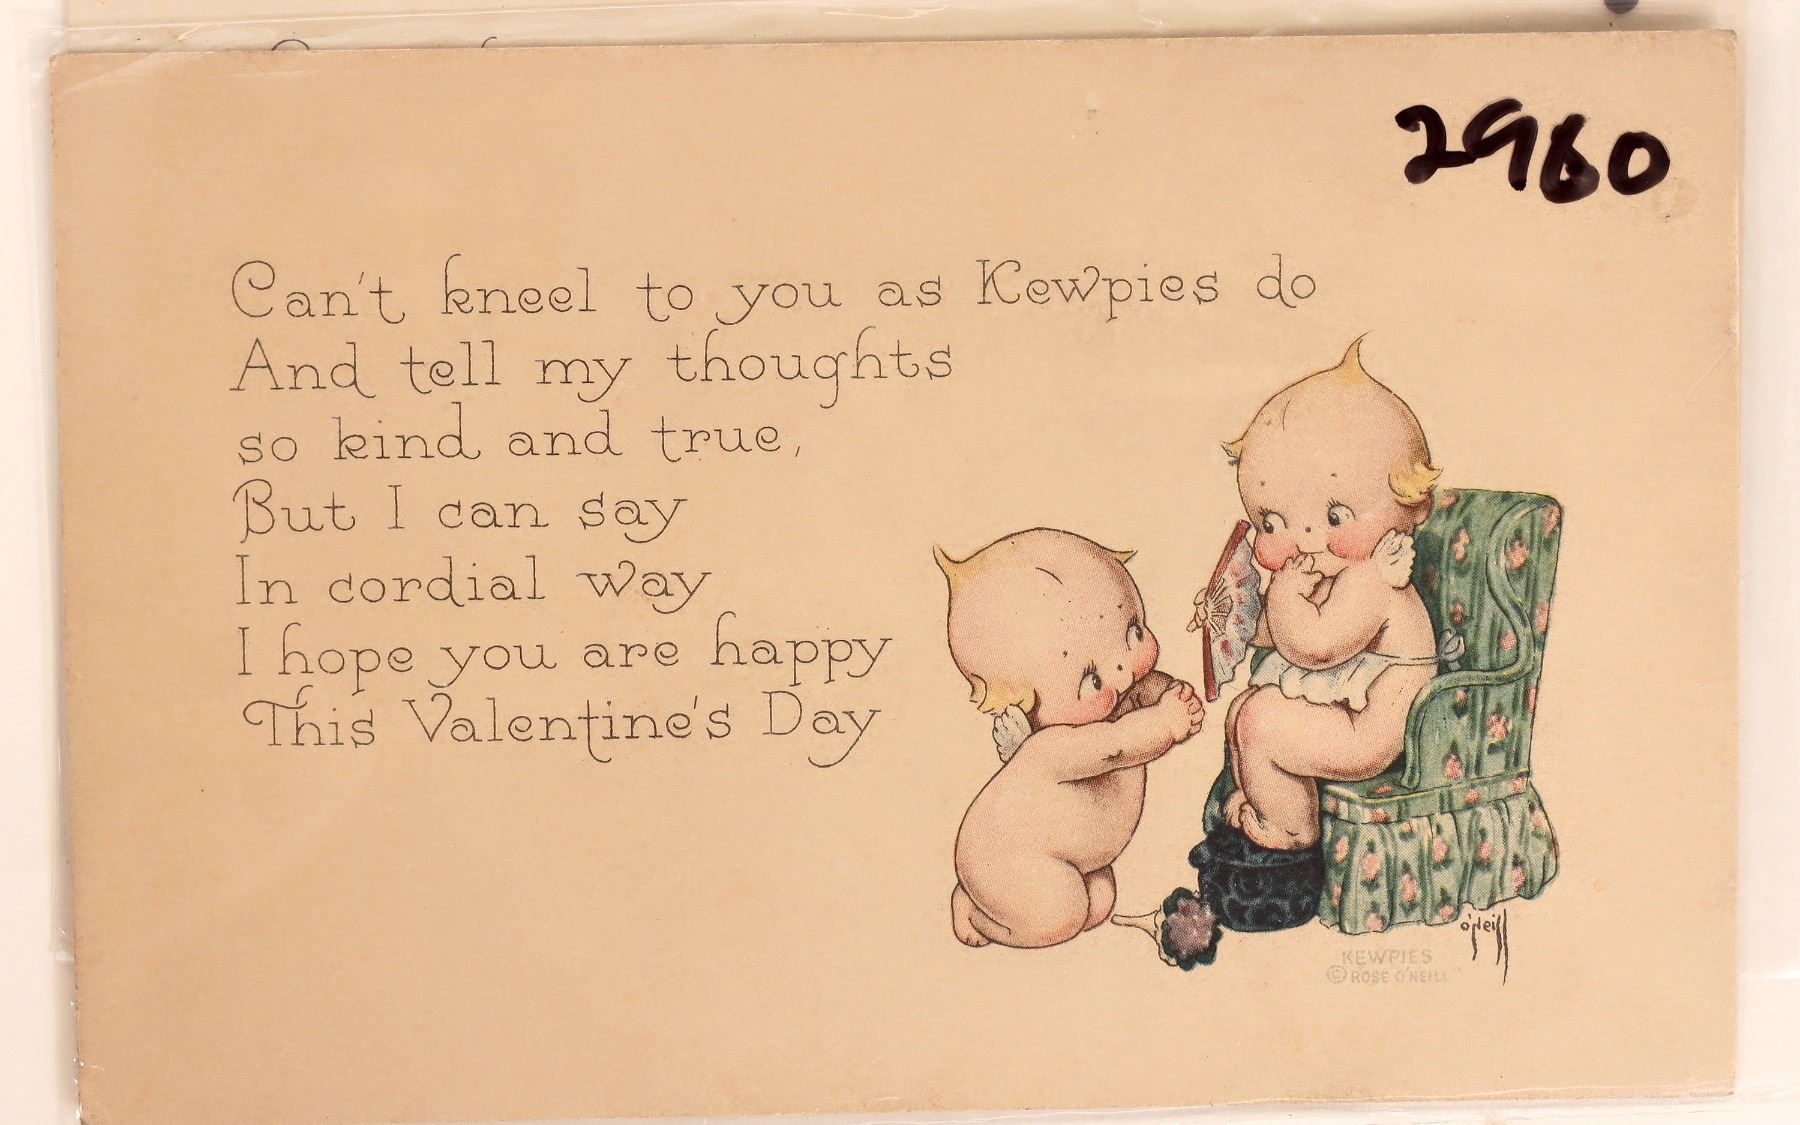 2960
Can't kneel to you as Kewpies do
And tell my thoughts
so kind and true,
But I can say
In cordial way
I hope you are happy
This Valentine's Day
O'Neill
KEWPIES
© ROSE O'NEILL